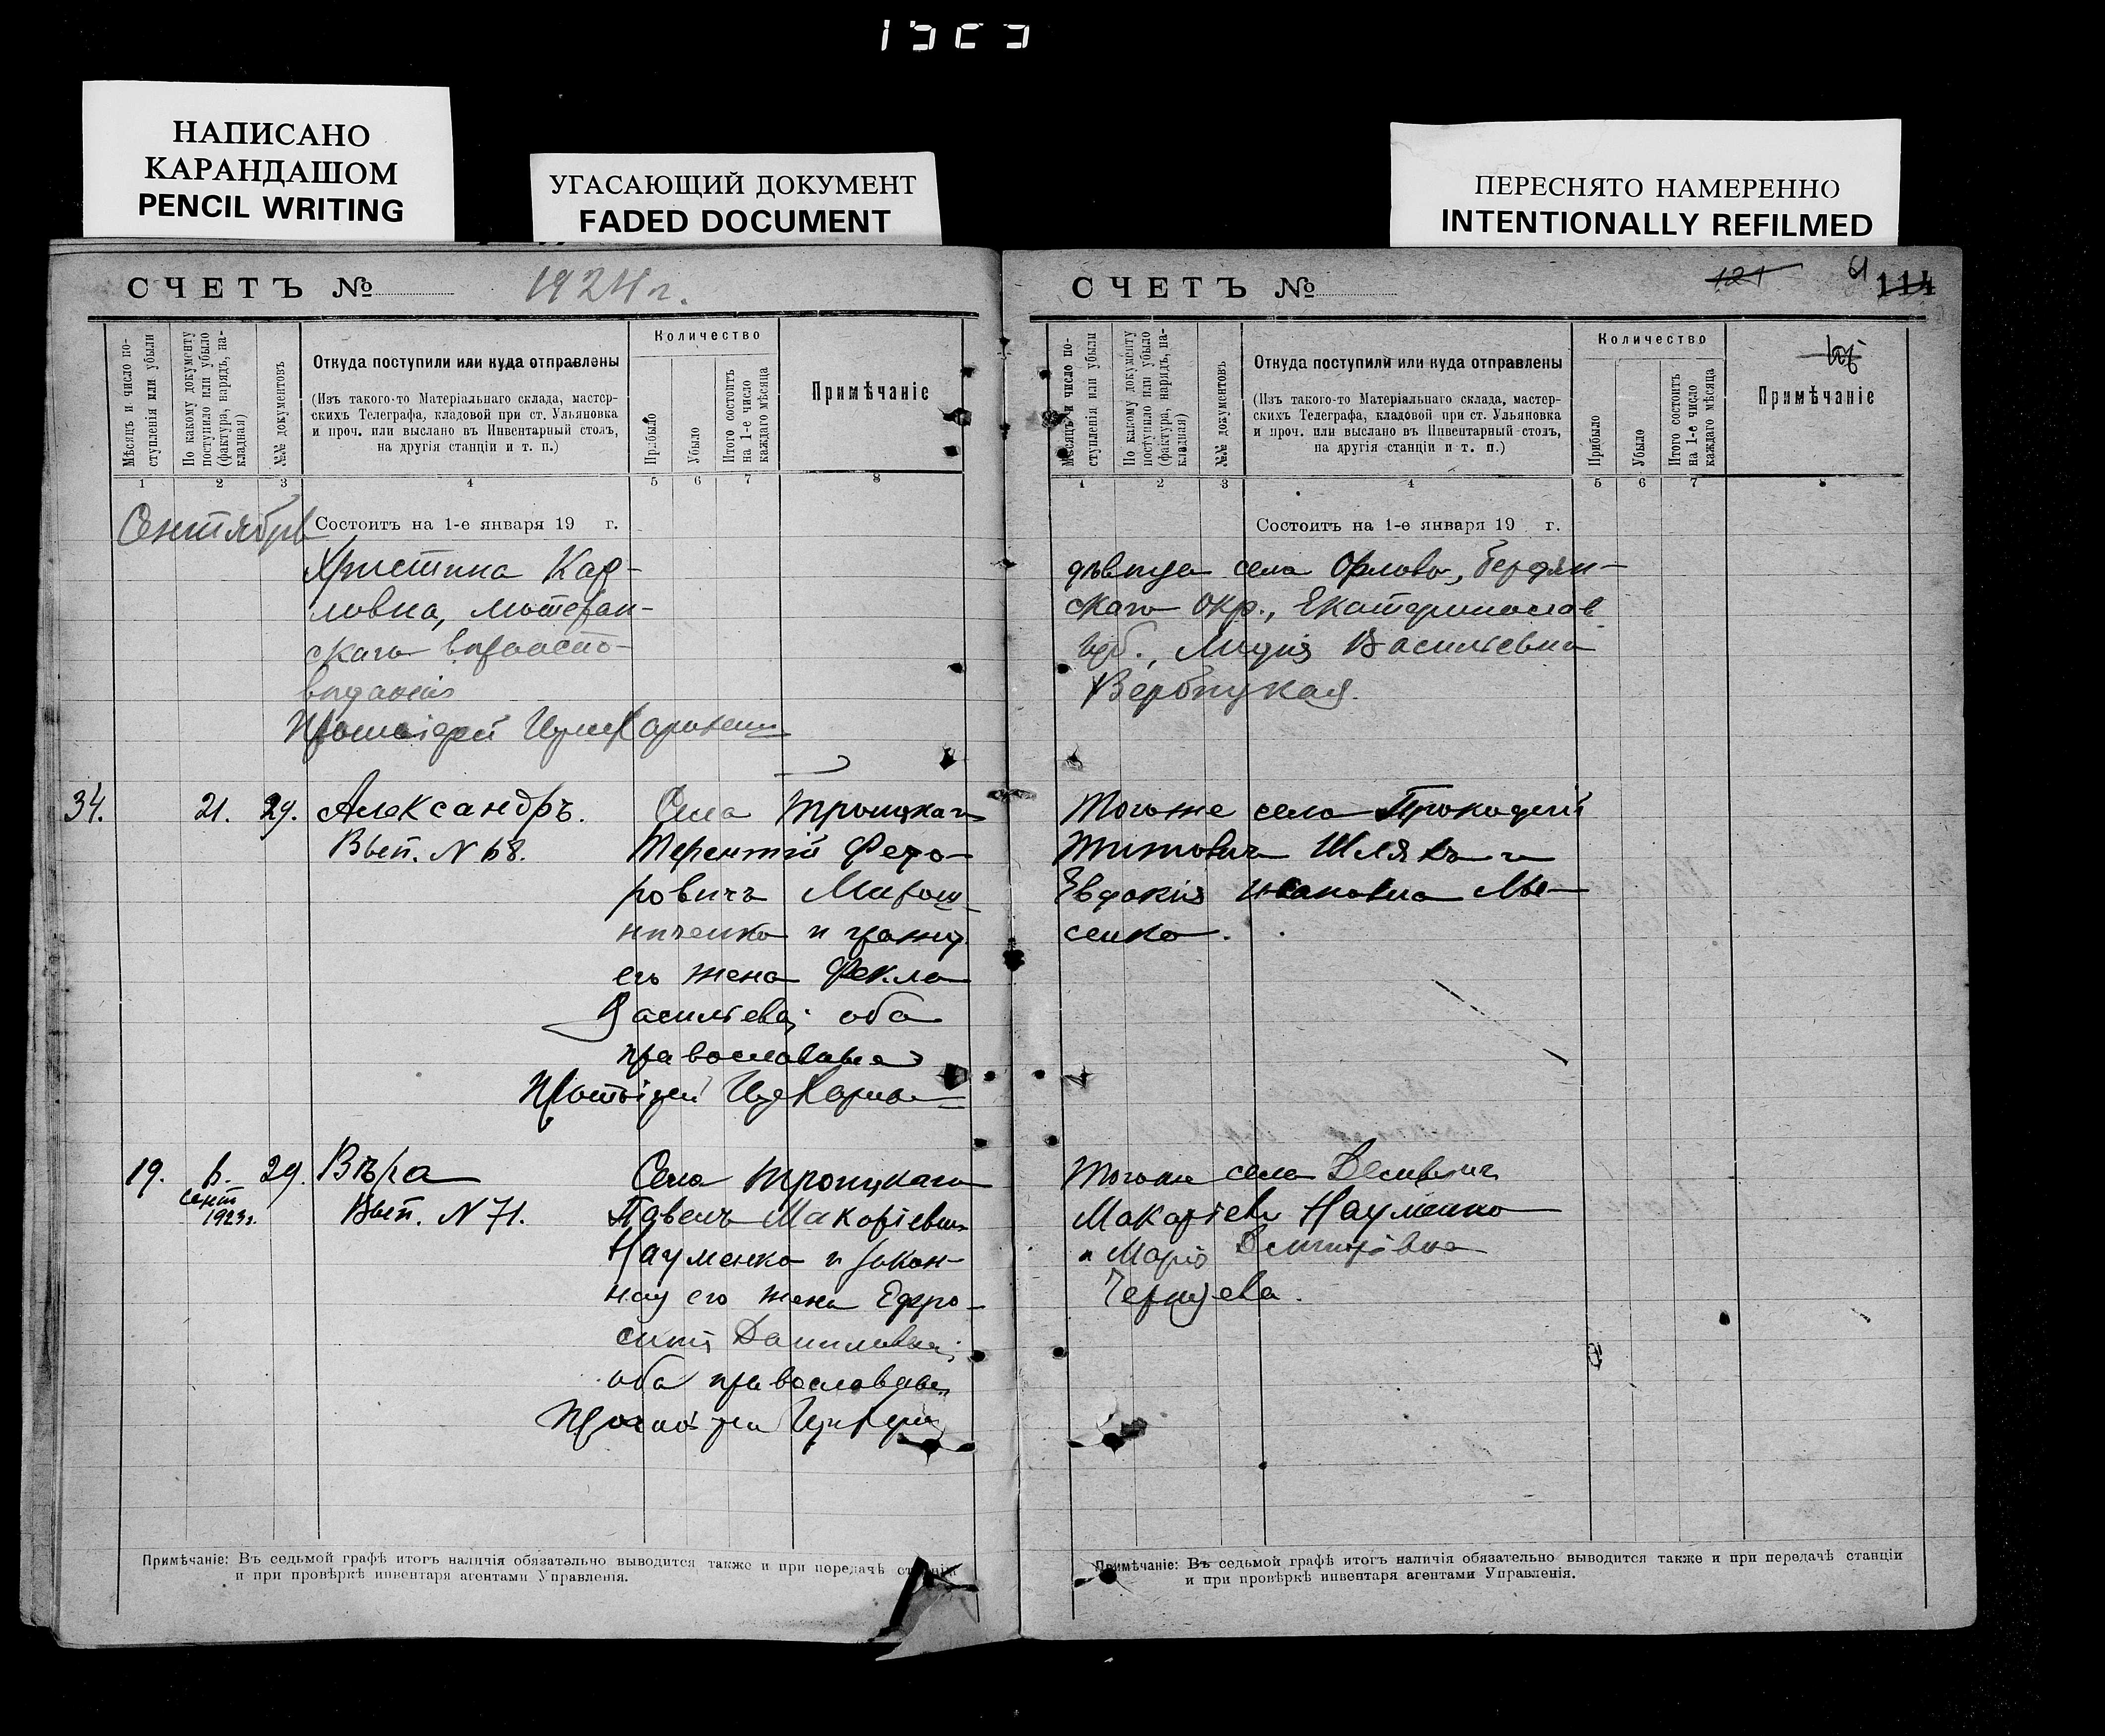 НАПИСАНО
КАРАНДАШОМ
PENCIL WRITING
УГАСАЮЩИЙ ДОКУМЕНТ
FADED DOCUMENT
ПЕРЕСНЯТО НАМЕРЕННО
INTENTIONALLY REFILMED
СЧЕТЪ №
1924 г.
Мѣсяцъ и число по-
ступленія или убыли
По какому документу
поступило или убыло
(фактура, нарядъ, на-
кладная)
№№ документовъ
Откуда поступили или куда отправлены
(Изъ такого-то Матеріальнаго склада, мастер-
скихъ Телеграфа, кладовой при ст. Ульяновка
и проч. или выслано въ Инвентарный столъ,
на другія станціи и т. п.)
Количество
Прибыло
Убыло
Итого состоитъ
на 1-е число
каждаго мѣсяца
Примѣчаніе
1 2 3 4 5 6 7 8
Сентябрь
Состоитъ на 1-е января 19 г.
Христина Кар-
ловна, лютеран-
скаго вѣроиспо-
вѣданія
Протоіерей
34. 21. 29. Александръ. Села Троицкаго
Вып. N 68. Терентій Федо-
ровичъ Мирош-
ниченко и
его жена Фекла
Васильева; оба
православные
Протоіерей
19. 6. 29. Вѣра Села Троицкаго
сент
1923 г.
Вып. N 71. Павелъ Макаріевичъ
Науменко и закон-
ная его жена Ефро-
синія Даниловна;
оба православные
Протоіерей
Примѣчаніе: Въ седьмой графѣ итогъ наличія обязательно выводится также и при передачѣ станціи
и при провѣркѣ инвентаря агентами Управленія.
СЧЕТЪ №
121
61
114
Мѣсяцъ и число по-
ступленія или убыли
По какому документу
поступило или убыло
(фактура, нарядъ, на-
кладная)
№№ документовъ
Откуда поступили или куда отправлены
(Изъ такого-то Матеріальнаго склада, мастер-
скихъ Телеграфа, кладовой при ст. Ульяновка
и проч. или выслано въ Инвентарный столъ,
на другія станціи и т. п.)
Количество
Прибыло
Убыло
Итого состоитъ
на 1-е число
каждаго мѣсяца
Примѣчаніе
1 2 3 4 5 6 7 8
Состоитъ на 1-е января 19 г.
дѣвица села Орлова, Бердян-
скаго окр., Екатеринослав.
губ., Лидія Васильевна
Вербицкая.
Тогоже села Прокофій
Титовичъ Шляхъ и
Евдокія Ивановна Лы-
сенко.
Тогоже села
Макаріевъ Науменко
и Марія Дмитріевна
Примѣчаніе: Въ седьмой графѣ итогъ наличія обязательно выводится также и при передачѣ станціи
и при провѣркѣ инвентаря агентами Управленія.